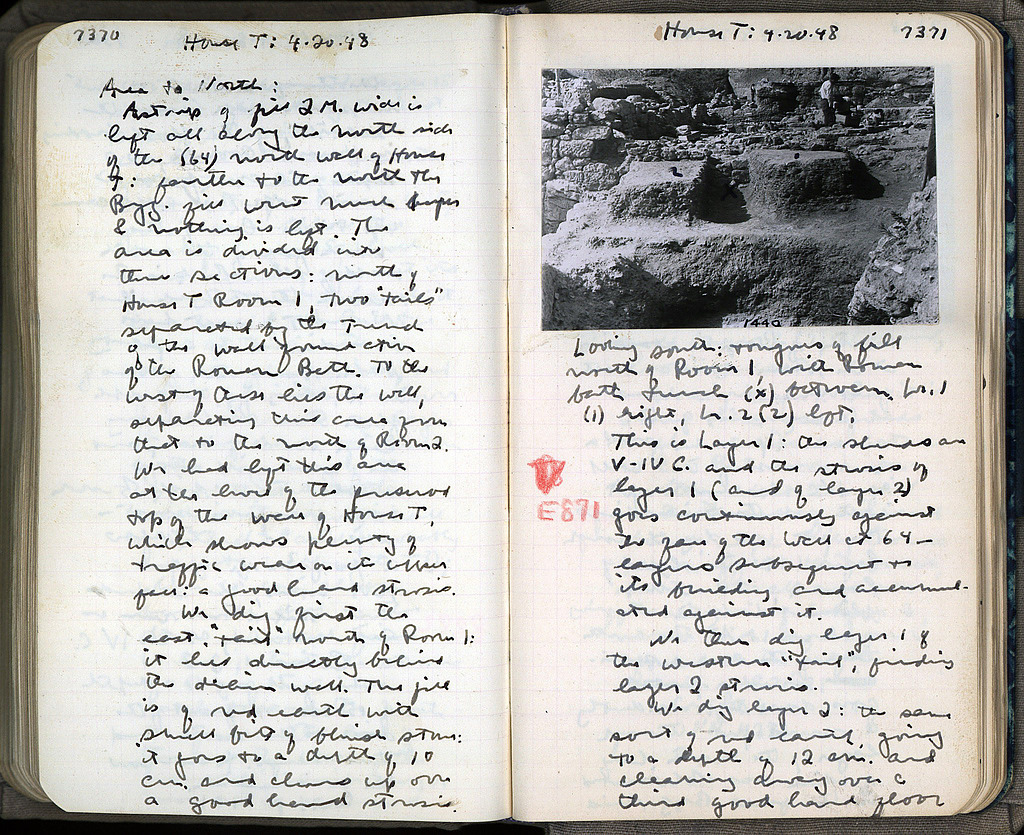 7370
House T: 4.20.48
Area to North:
A strip of fill 2 M. wide is
left all along the north side
of the (64) north wall of House
T: farther to the north the
Byz. fill went much deeper
& nothing is left. The
area is divided into
three sections: north of
House T Room 1, two "tails"
separated by the Trench
of the wall foundation
of the Roman Bath. To the
west of these lies the wall,
separating this area from
that to the north of Room 2.
We had left this area
at the level of the preserved
top of the wall of House T,
which shows plenty of
traffic wear on its upper
face: a good hard strosis.
We dig first the
east "tail" north of Room 1:
it lies directly behind
the wall. The fill
is of red earth with
small bits of stone:
it goes to a depth of 10
cm. and cleans up over
a good hard strosis.
House T: 4.20.48
7371
1440
Looking south: tongues of fill
north of Room 1, with Roman
bath trench (x) between, 1
(1) right, 2 (2) left.
This is Layer 1: the sherds are
V-IV C. and the strosis of
layer 1 (and of layer 2)
goes continuously against
the face of the wall at 64 –
layers subsequent to
its building and accumul-
ated against it.
E871
We then dig layer 1 of
the western "tail" finding
layer 2 strosis.
We dig layer 2: the same
sort of red earth, going
to a depth of 12 cm. and
cleaning away over a
third good hard floor